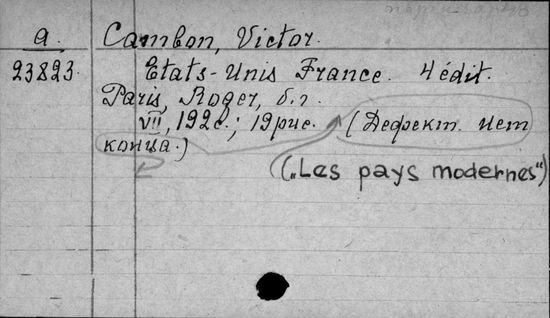 a. Cambon, Victor.
23823. Etats-Unis France. 4 édit.
Paris, Roger, б.г.
VII, 192 с.; 19 рис. (Дефект. нет
конца.)
("Les pays modernes")